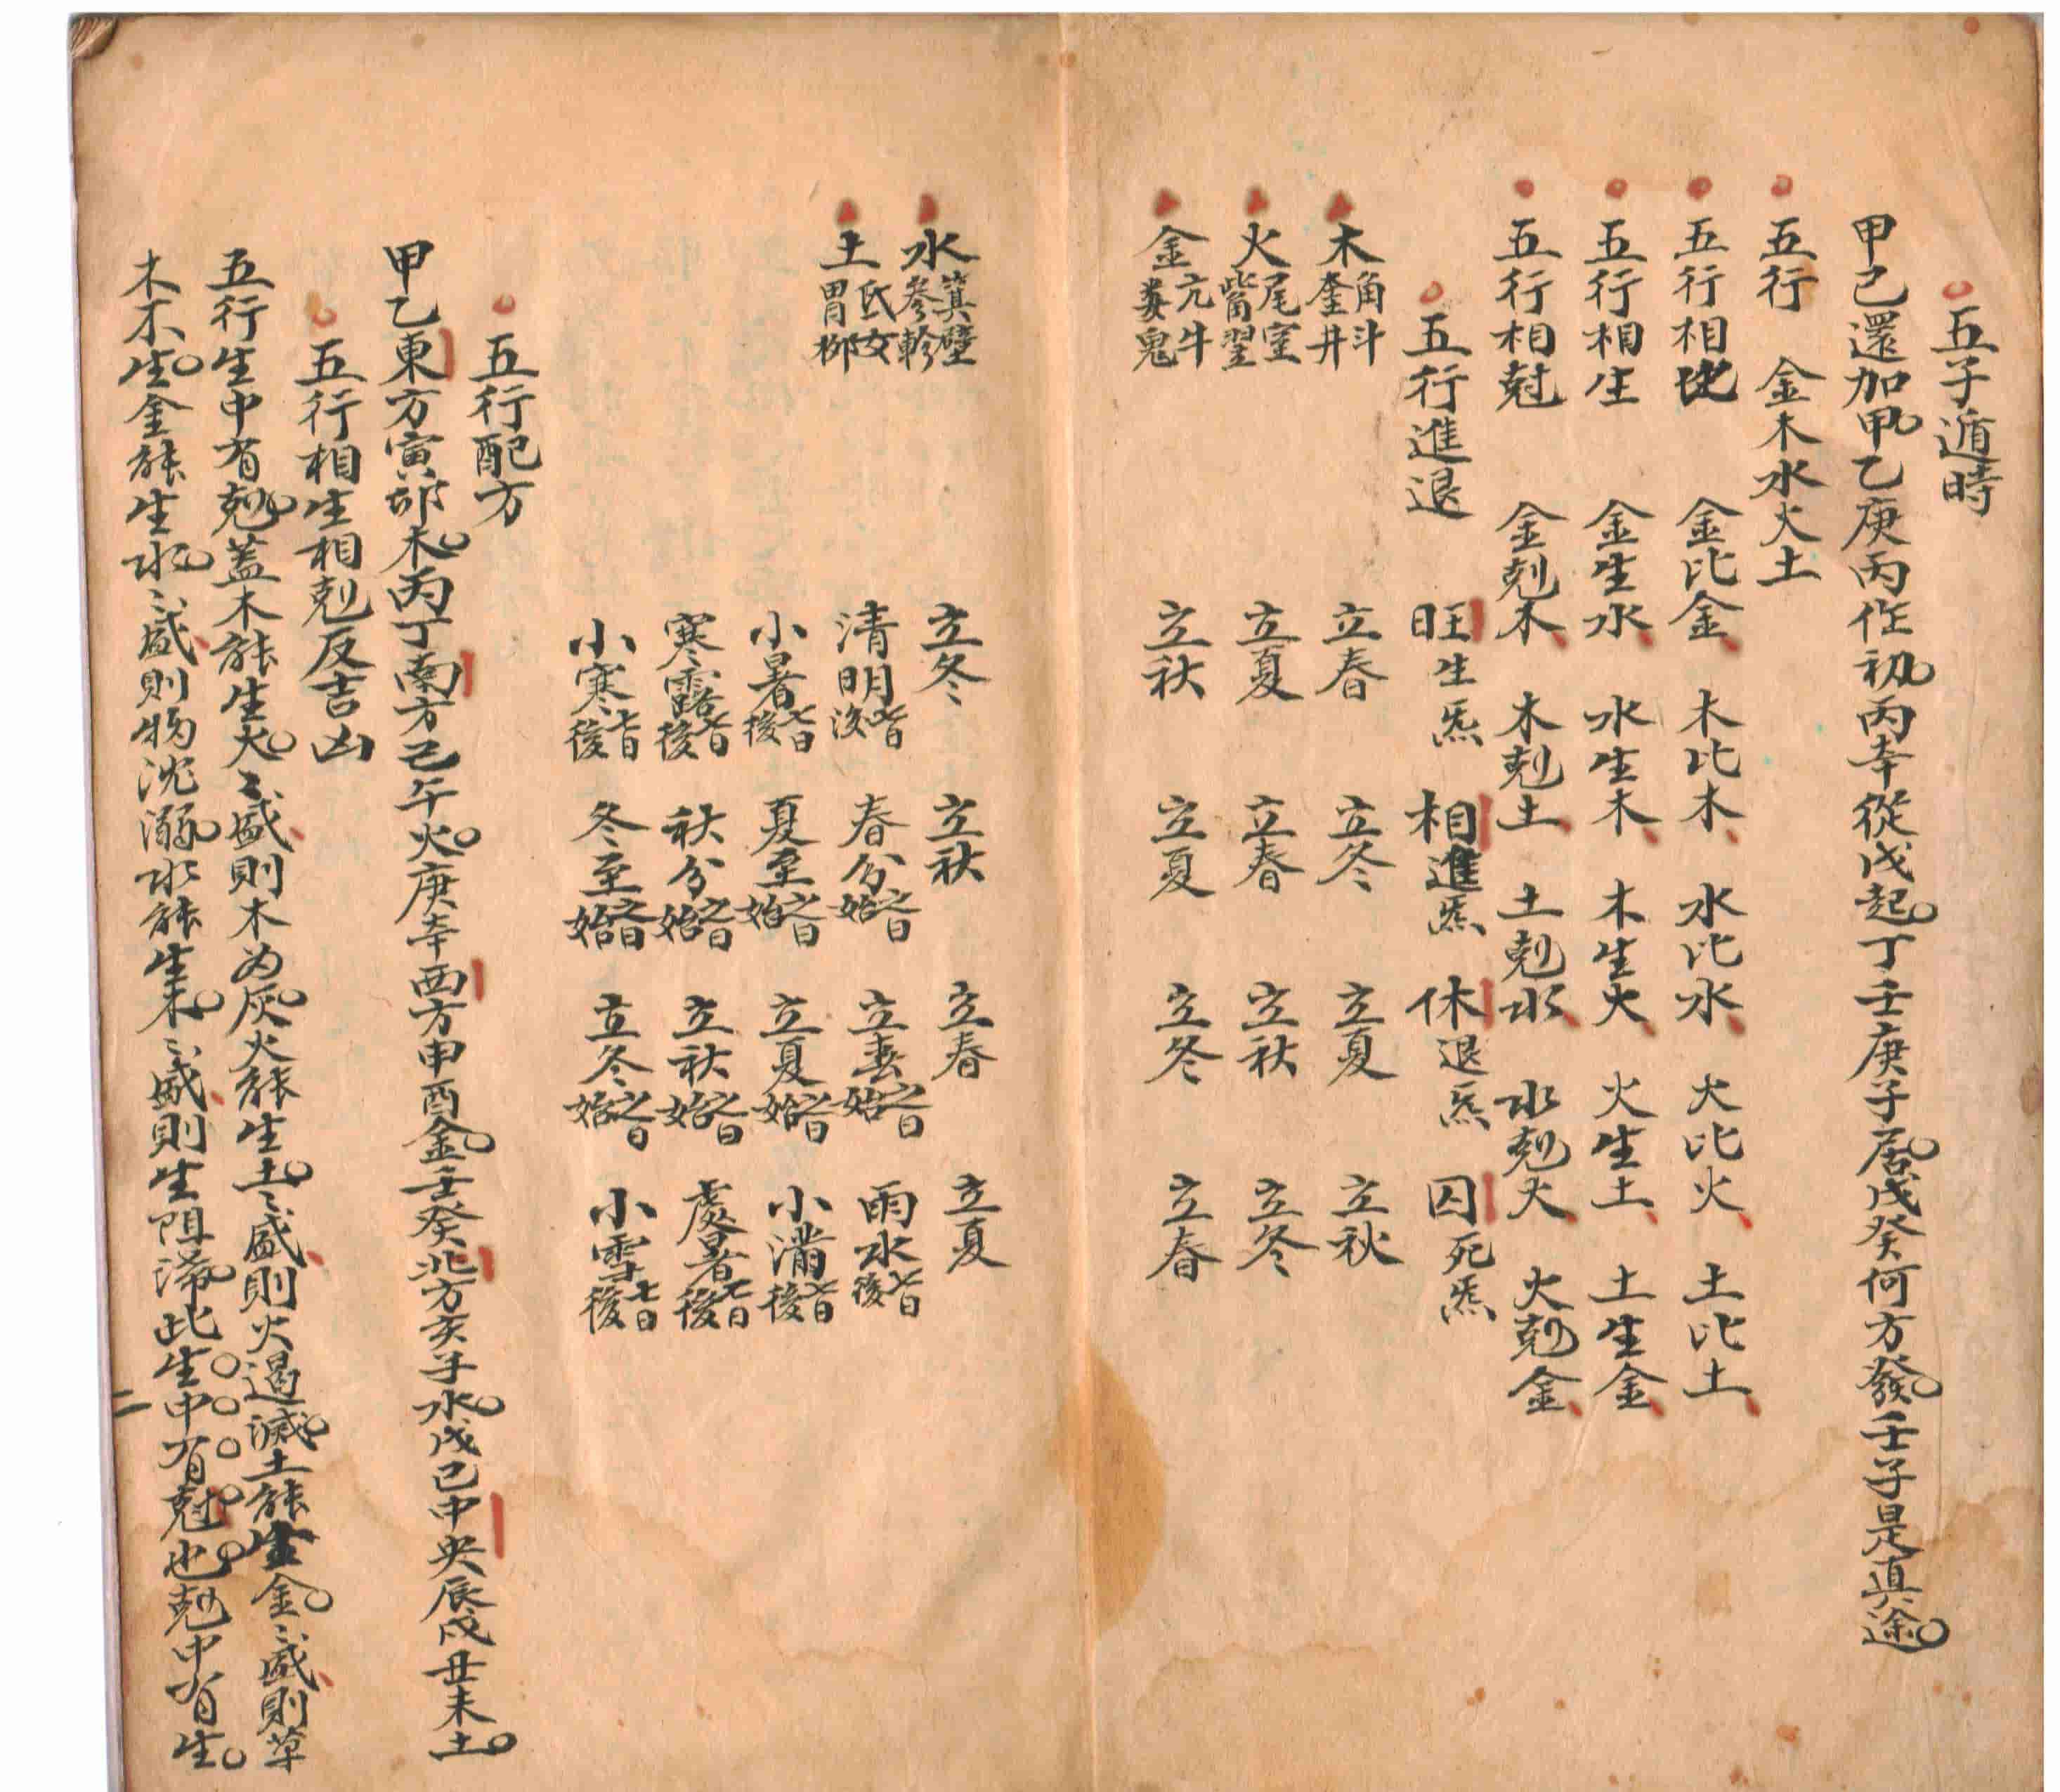 五子遁時
甲己還加甲乙庚丙作初丙辛從戊起丁壬庚子居戊癸何方發壬子是真途
五行 金木水火土
五行相比 金比金 木比木 水比水 火比火 土比土
五行相生 金生水 水生木 木生火 火生土 土生金
五行相尅 金剋木 木剋土 土剋水 水剋火 火剋金
五行進退 旺生炁 相進炁 休退炁 囚死炁
木角斗奎井 立春 立冬 立夏 立秋
火尾室觜翌 立夏 立春 立秋 立冬
金亢牛婁鬼 立秋 立夏 立冬 立春
水箕壁參軫 立冬 立秋 立春 立夏
土氐女胃柳 清明 春分之日始 立春之日始 雨水七日後
小暑七日後 夏至之日始 立夏之日始 小滿七日後
寒露七日後 秋分之日始 立秋之日始 處暑七日後
小寒七日後 冬至之日始 立冬之日始 小雪七日後
五行配方
甲乙東方寅卯木丙丁南方己午火庚辛西方申酉金壬癸北方亥子水戊己中央辰戌丑未土
五行相生相剋反吉凶
五行生中有剋蓋木能生火〻盛則木为灰火能生土〻盛則火遏滅土能生金〻盛則草
木不生金能生水〻盛則物沈溺水能生木〻盛則生阻滯此生中有尅也剋中有生
二